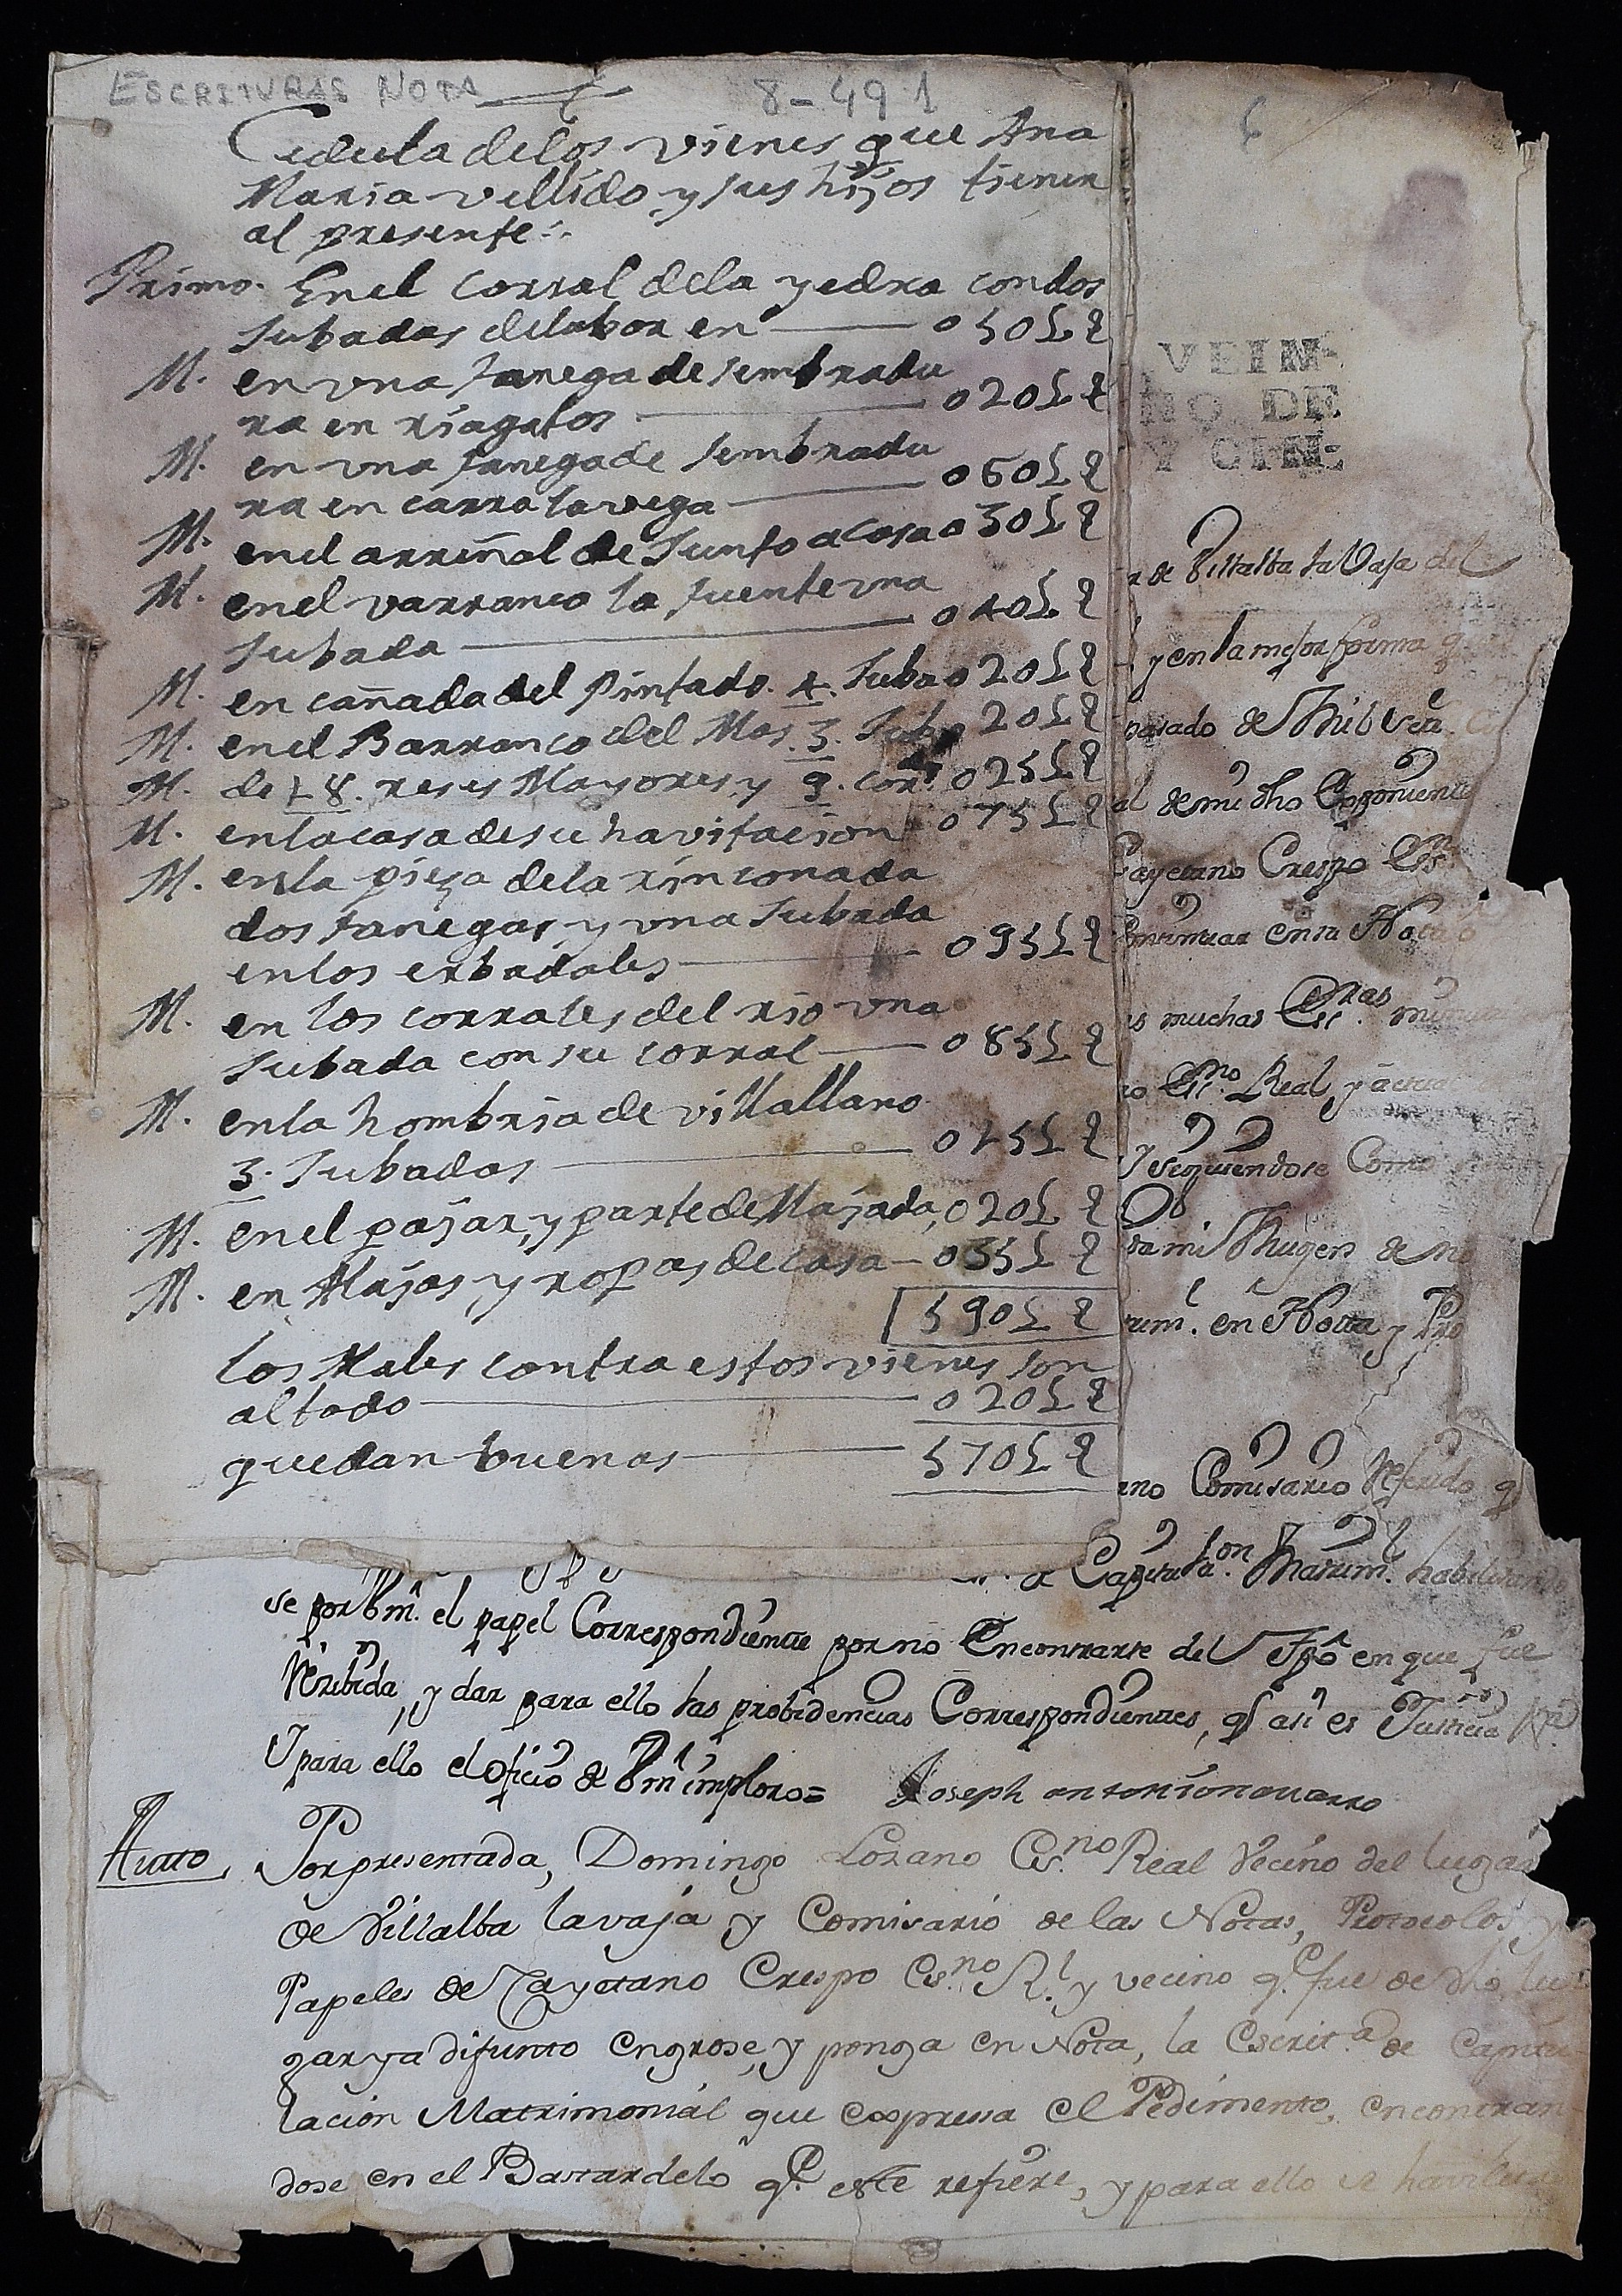 ESCRITURAS NOTA 8-491
6
Cedula delos vienes que Ana
Maria vellido y sus hijos tienen
al presente
Primo. En el corral dela yedra con dos
Jubadas delabor en — 050 L
M. en vna fanega de sembradu
ra en riagatos — 020 L
M. en vna fanega de sembradu
ra en carra la vega — 060 L
M. en el arreñal de Junto a casa 030 L
M. en el varranco la fuente vna
Jubada — 040 L
M. en cañada del Pintado. 4. Juba 020 L
M. en el Barranco del Mas. 3. Jub 020 L
M. de 18. reses Mayores y 9. cor. 025 L
M. en la casa de su havitacion 075 L
M. en la pieza de la rinconada
dos fanegas y vna Jubada
en los erbadales — 095 L
M. en los corrales del rio vna
Jubada con su corral — 085 L
M. en la hombria de villallano
3. Jubadas — 015 L
M. en el pajar, y parte de Majada, 020 L
M. en Alajas y ropas de casa — 035 L
590 L
los Males contra estos vienes son
al todo — 020 L
quedan buenos — 570 L
VEIN-
NO DE
Y CIN-
r de Villalba la Vaja del
y en la mejor forma q
pasado de Mil
al de mi dho Exponiente
Cayetano Crespo Esn
Continuar en su Nota
s muchas Escras
no Esno. Real y actual
y siguiendose Como
da mi Muger de
rim. en Nota y Pro
ano Comisario Referido q
de Capitulaon. Matrim. habilitando
se por Vm. el papel Correspondiente por no Encontrarse del Tpo en que fue
Rezibida, y dar para ello las probidencias Correspondientes, q asi es Justicia
Y para ello el oficio de Vm imploro=   Joseph antonio navarro
Auto, Por presentada, Domingo Lozano Esno Real Vecino del Lugar
de Villalba la vaja y Comisario de las Notas, Protocolos, y
Papeles de Cayetano Crespo Esno. Rl. y vecino q. fue de dho. lu
gar ya difunto engrose, y ponga en Nota, la Escrita de Capitu
lacion Matrimonial que expresa el Pedimento, encontran
dose en el Bastardelo q. este refiere, y para ello se havilite